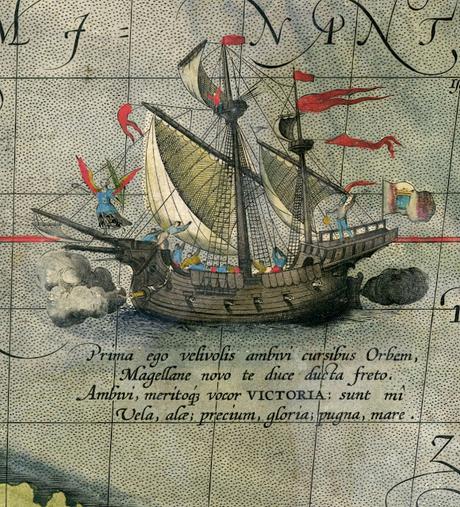 M J = N P N T
Prima ego velivolis ambivi cursibus Orbem,
Magellane novo te duce ducta freto.
Ambivi, meritoq; vocor VICTORIA: sunt mî
Vela, alæ; precium, gloria; pugna, mare.